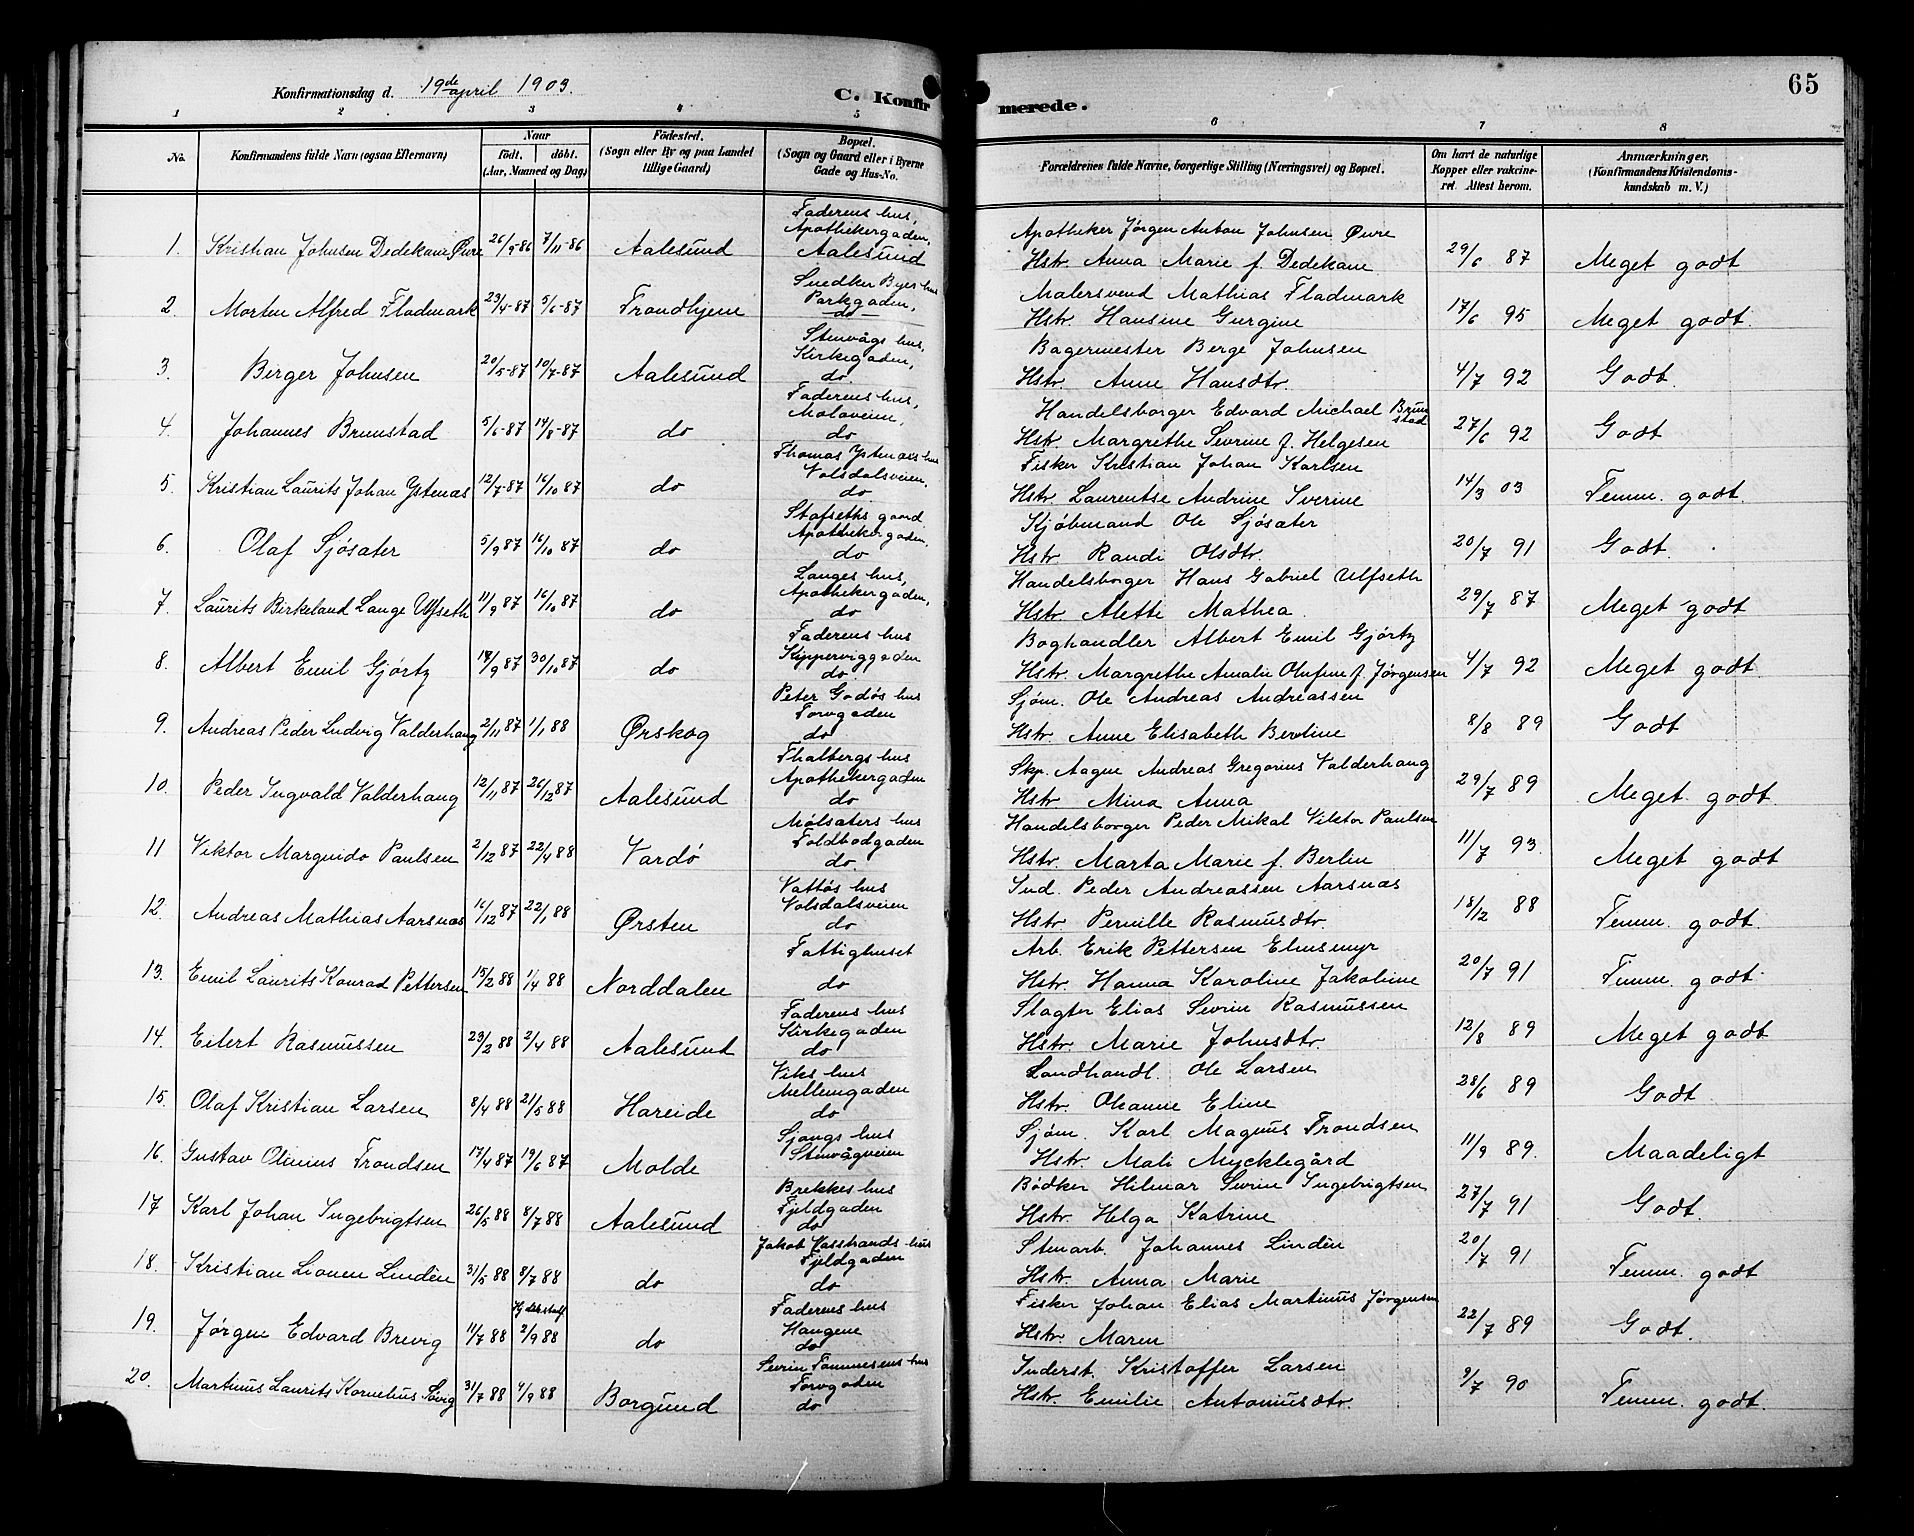 65
Konfirmationsdag d. 19de april 1903.
C. Konfirmerede.
1 2 3 4 5 6 7 8
No. Konfirmandens fulde Navn (ogsaa Efternavn) Naar født. døbt. (Aar, Maaned og Dag) Fødested. (Sogn eller By og paa Landet tillige Gaard) Bopæl. (Sogn og Gaard eller i Byerne Gade og Hus-No. Forældrenes fulde Navne, borgerlige Stilling (Næringsvei) og Bopæl. Om havt de naturlige Kopper eller vakcineret. Attest herom. Anmærkninger. (Konfirmandens Kristendomskundskab m. V.)
1. Kristian Johnsen Dedekam Øvre 26/9-86 7/11-86 Aalesund Faderens hus, Apothekergaden, Aalesund Apotheker Jørgen Anton Johnsen Øvre Hstr. Anna Marie f. Dedekam 29/6 87 Meget godt
2. Morten Alfred Fladmark 23/4-87 5/6-87 Trondhjem Snedker Byes hus Parkgaden, do Malersvend Mathias Fladmark Hstr. Hansine Gurgine 17/6 95 Meget godt.
3. Berger Johnsen 20/5-87 10/7-87 Aalesund Stenvågs hus, Kirkegaden, do. Bagermester Berge Johnsen Hstr. Anne Hansdtr. 4/7 92 Godt.
4. Johannes Brunstad 5/6-87 14/8-87 do Faderens hus, Moloveien, do Handelsborger Edvard Michael Brunstad Hstr. Margrethe Sevrine f. Helgesen 27/6 92 Godt
5. Kristian Laurits Johan Ystenæs 12/7-87 16/10 87 do Thomas Ystenæs hus Volsdalsveien, do Fisker Kristian Johan Karlsen Hstr. Laurentse Andrine Sverine 14/3 03 Temm. godt
6. Olaf Sjøsæter 5/9 87 16/10 87 do Stafseths gaard Apothekergaden, do Kjøbmand Ole Sjøsæter Hstr. Randi Olsdtr. 20/7 91 Godt.
7. Laurits Birkeland Lange Ulfseth 11/9 87 16/10 87 do Langes hus, Apothekergaden, do Handelsborger Hans Gabriel Ulfseth Hstr. Alette Mathea. 29/7 87 Meget godt
8. Albert Emil Gjørtz 19/9 87 30/10 87 do Faderens hus Kippervïggaden do Boghandler Albert Emil Gjørtz Hstr. Margrethe Amalie Olufine f. Jørgensen 4/7 92 Meget godt
9. Andreas Peder Ludvig Valderhaug 2/11 87 1/1 88 Ørskog Peter Godøs hus Torvgaden do Sjøm. Ole Andreas Andreassen Hstr. Anne Elisabeth Bertine 8/8 89 Godt
10. Peder Ingvald Valderhaug 12/11 87 26/12 87 Aalesund Thalbergs hus Apothekergaden do Skp. Aagen Andreas Gregorius Valderhaug Hstr. Mina Anna 29/7 89 Meget godt
11 Viktor Marguido Paulsen 2/12 87 22/4 88 Vardø Mølsæters hus Toldbodgaden do. Handelsborger Peder Mikal Viktor Paulsen Hstr. Marta Marie f. Berlin 11/7 93. Meget godt
12. Andreas Mathias Aarsnæs 16/12 87 22/1 88 Ørsten Vattøs hus Volsdalsveien do Ind. Peder Andreassen Aarsnæs Hstr. Pernille Rasmusdtr. 18/12 88 Temm. godt
13. Emil Laurits Konrad Pettersen 15/2 88 1/4 88 Norddalen Fattighuset do Arb. Erik Pettersen Elmsmyr Hstr. Hanna Karoline Jakobine 20/7 91 Temm. godt
14. Eilert Rasmussen 23/2 88 2/4 88 Aalesund Faderens hus Kirkegaden do Slagter Elias Sevrin Rasmussen Hstr. Marie Johnsdtr. 12/8 89 Meget godt
15. Olaf Kristian Larsen 8/4 88 21/5 88 Hareide Viks hus Mellemgaden do Landhandl. Ole Larsen Hstr. Oleanne Eline 28/6 89 Godt.
16. Gustav Olinius Trondsen 17/4 87 19/6 87 Molde Sjongs hus Stenvågveien Sjøm. Karl Magnus Trondsen Hstr. Mali Mycklegård 11/9 89. Maadeligt
17 Karl Johan Ingebrigtsen 26/5 88 8/7 88 Aalesund Brekkes hus Fjeldgaden do Bødker Hilmar Sevrin Ingebrigtsen Hstr. Helga Katrine 27/7 91 Godt.
18. Kristian Lionen Lindèn 31/5 88 8/7 88 do Jakob Vasstrands hus Fjeldgaden do Stenarb. Johannes Lindèn Hstr. Anna Marie 20/7 91 Temm. godt
19. Jørgen Edvard Brevig 11/7 88 2/9 88 do Faderens hus Haugene do Fisker Johan Elias Martinus Jørgensen Hstr. Maren 22/7 89 Godt.
20. Martinus Laurits Kornelius Søvig 31/7 88 9/9 88 Borgund Sevrin Tommesens hus Torvgaden do Inderst. Kristoffer Larsen Hstr. Emilie Antoniusdtr. 9/7 90 Temm. godt.